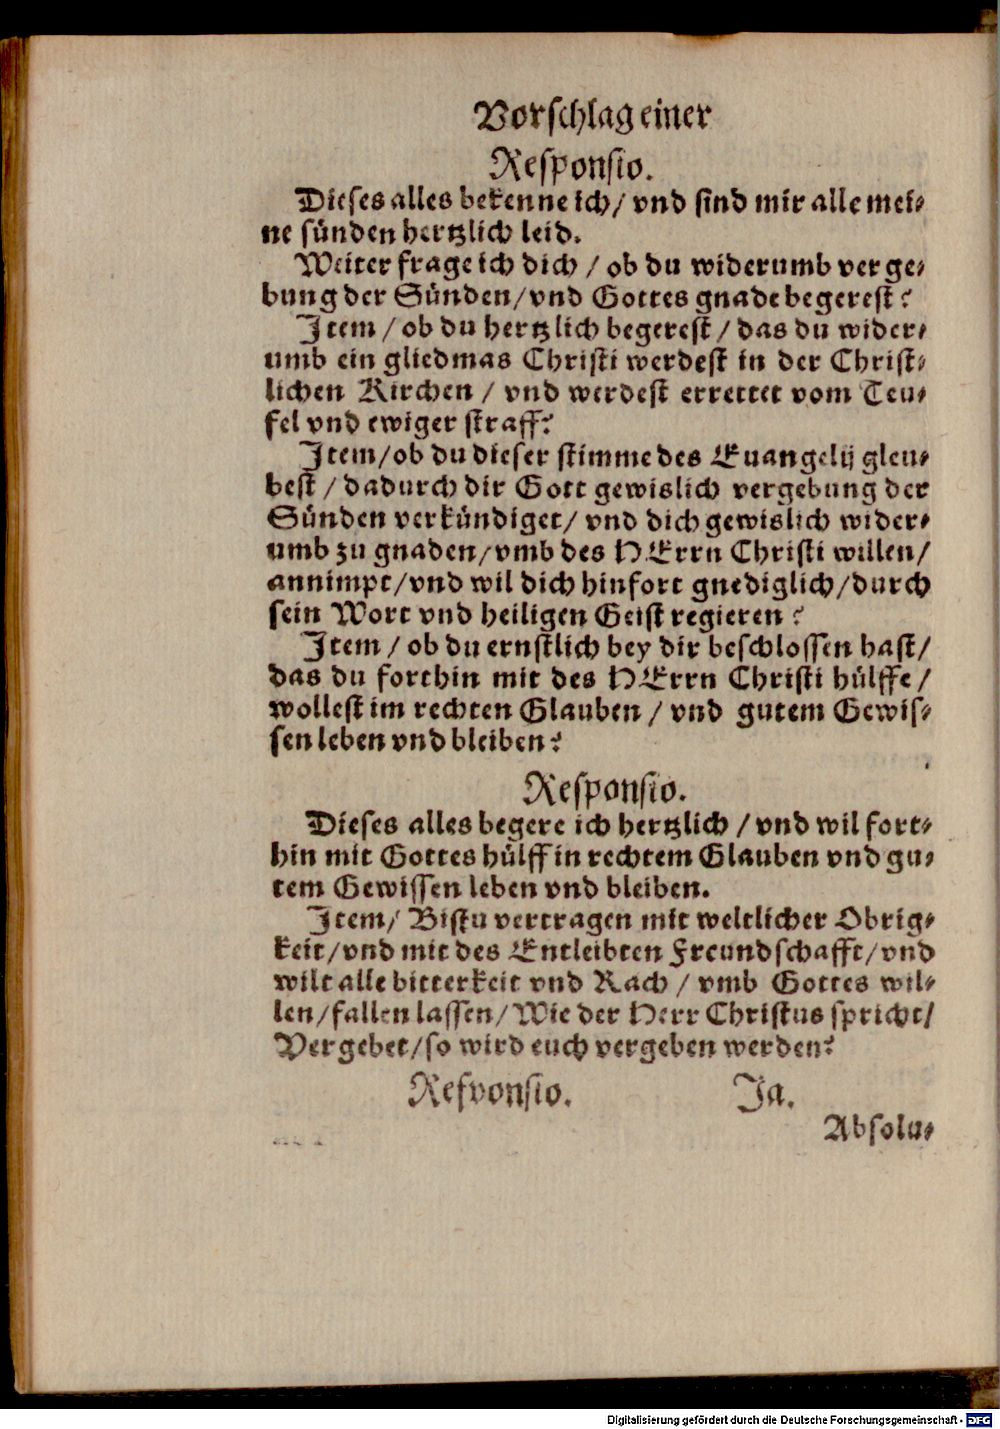 Vorschlag einer
Responsio.
Dieses alles bekenne ich/ vnd sind mir alle mei⸗
ne sünden hertzlich leid.
Weiter frage ich dich / ob du widerumb verge⸗
bung der Sünden/ vnd Gottes gnade begerest?
Item / ob du hertzlich begerest / das du wider⸗
umb ein gliedmas Christi werdest in der Christ⸗
lichen Kirchen / vnd werdest errettet vom Teu⸗
fel vnd ewiger straff?
Item/ ob du dieser stimme des Euangelij gleu⸗
best / dadurch dir Gott gewislich vergebung der
Sünden verkündiget/ vnd dich gewislich wider⸗
umb zu gnaden/ vmb des HErrn Christi willen/
annimpt/ vnd wil dich hinfort gnediglich/ durch
sein Wort vnd heiligen Geist regieren?
Item / ob du ernstlich bey dir beschlossen hast/
das du forthin mit des HErrn Christi hülffe /
wollest im rechten Glauben / vnd gutem Gewis⸗
sen leben vnd bleiben?
Responsio.
Dieses alles begere ich hertzlich / vnd wil fort⸗
hin mit Gottes hülff in rechtem Glauben vnd gu⸗
tem Gewissen leben vnd bleiben.
Item/ Bistu vertragen mit weltlicher Obrig⸗
keit/ vnd mit des Entleibten Freundschafft/ vnd
wilt alle bitterkeit vnd Rach / vmb Gottes wil⸗
len/ fallen lassen/ Wie der Herr Christus spricht/
Vergebet/ so wird euch vergeben werden?
Responsio. Ja.
Absolu⸗
Digitalisierung gefördert durch die Deutsche Forschungsgemeinschaft - DFG